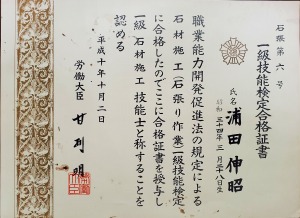 石張第六号
一級技能検定合格証書
氏名 浦田伸昭
昭和三十四年三月二十八日生
職業能力開発促進法の規定による
石材施工(石張り作業)一級技能検定
に合格したのでここに合格証書を授与し
一級石材施工技能士と称することを
認める
平成十年十月二日
労働大臣 甘利明